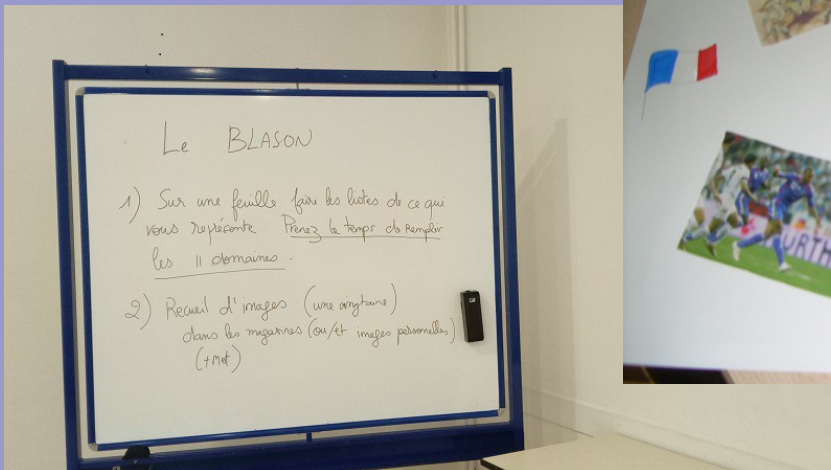 Le BLASON
1) Sur une feuille faire les listes de ce qui
vous représente Prenez le temps de Remplir
les 11 domaines.
2) Recueil d'images (une
dans les magazines (ou/et images personnelles)
(+Mot)
URTH